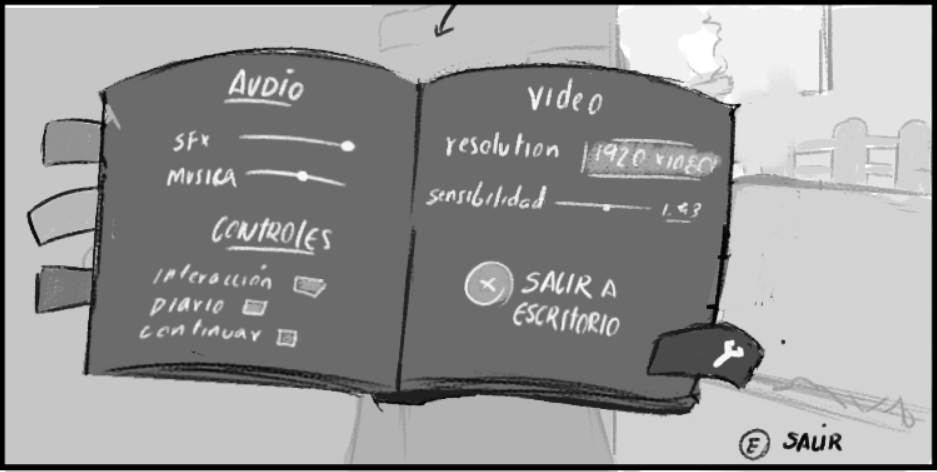 AUDIO
SFX
MUSICA
CONTROLES
interacción
DIARIO
continuar
VIDEO
resolution 1920 x1080
sensibilidad
SALIR A
ESCRITORIO
E SALIR